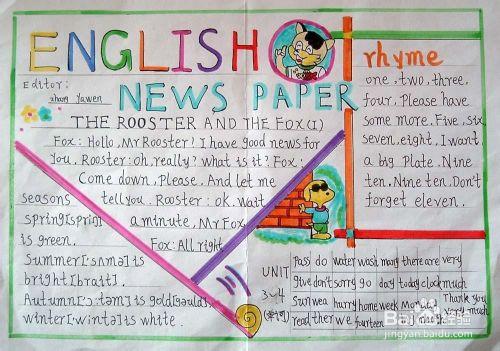 ENGLISH
NEWS PAPER
Editor:
zhang Yawen
THE ROOSTER AND THE FOX(1)
Fox: Hallo, Mr Rooster! I have good news for
you. Rooster: oh, really? what is it? Fox:
Come down, Please, And let me
tell you. Rooster: ok. wait
a minute, Mr Fox.
Fox: All right
seasons
spring[spriŋ]
is green.
Summer['sʌmə] is
bright[brait].
Autumn['ɔ:təm] is gold[gəuld].
winter['wintə] is white.
rhyme
one, two, three,
four, Please have
some more. Five, six
seven, eight, I want
a big Plate. Nine
ten, Nine ten. Don't
forget eleven.
UNIT
3~4
(单词)
Pass do water wash many there are very
give don't sorry go day today clock much
sun wea hurry home week Mon
read ther we fourteen
Thank you
very much
Bai 经验
jingyan.baidu.com